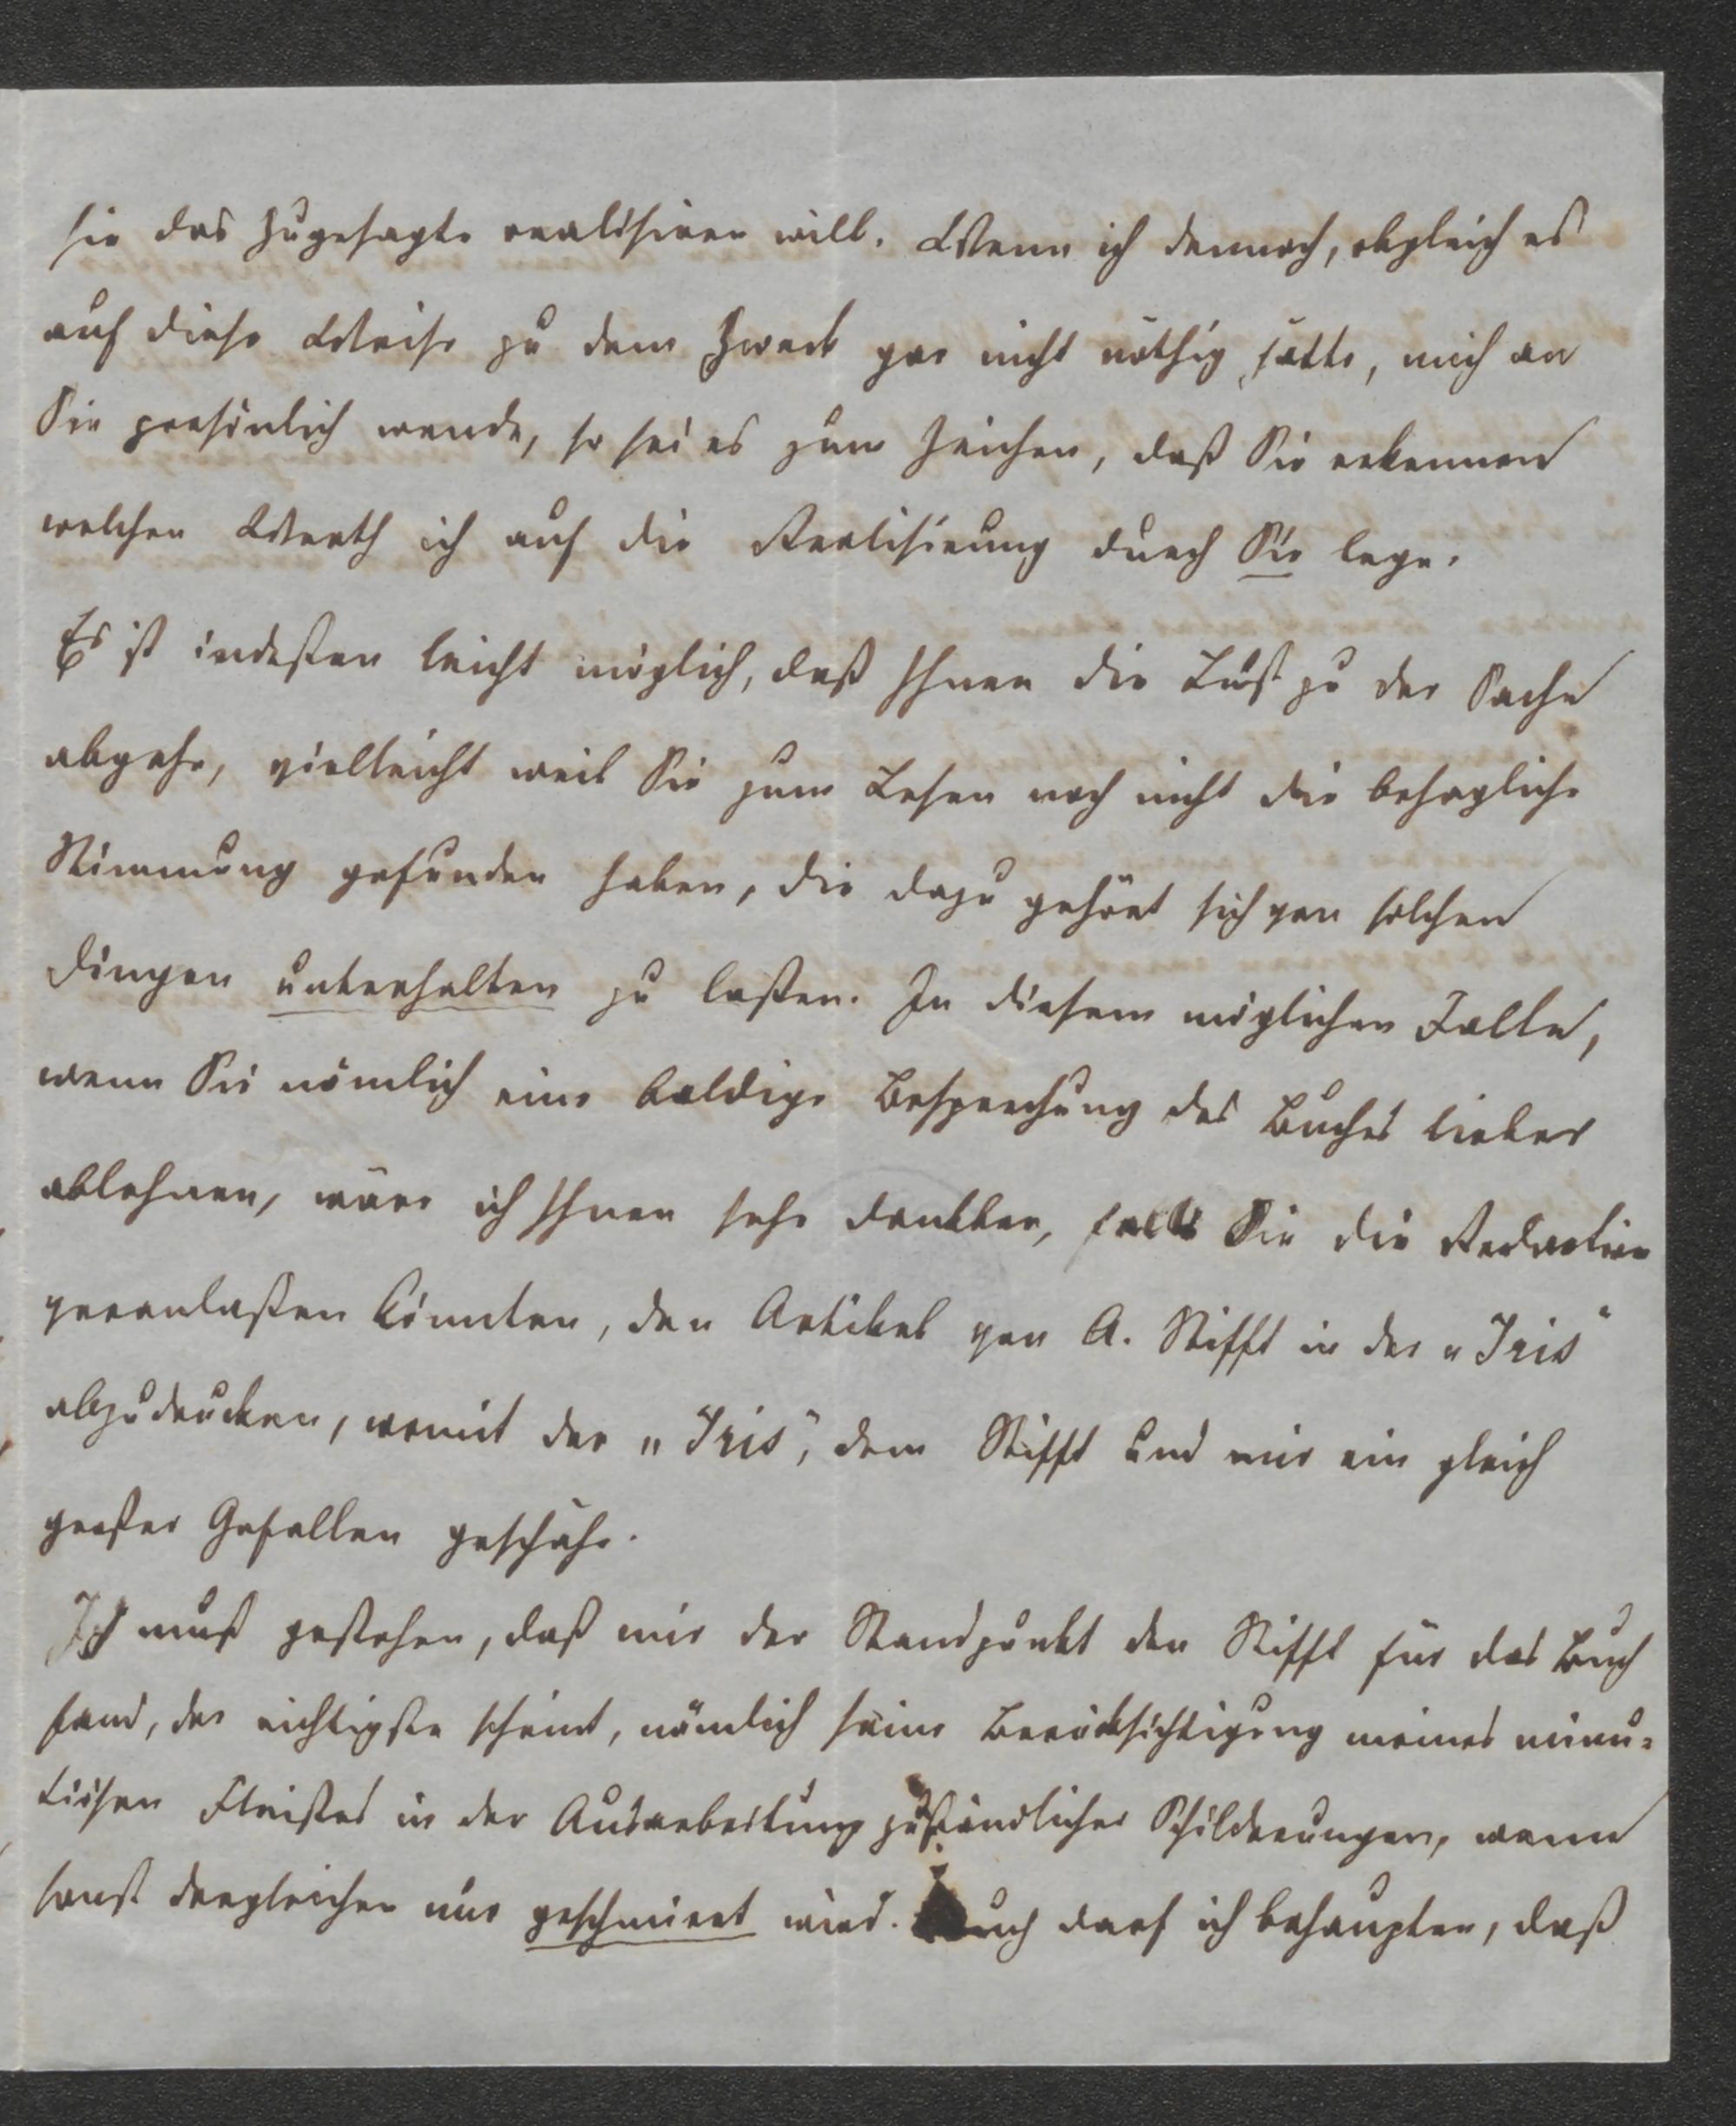 sie das Zugesagte realisiren will. Wenn ich dennoch, obgleich es
auf diese Weise zu dem Zweck gar nicht nöthig hätte, mich an
Sie persönlich wende, so sei es zum Zeichen, daß Sie erkennen
welchen Werth ich auf die Realisirung durch Sie lege.
Es ist indeßen leicht möglich, daß Ihnen die Lust zu der Sache
abgehe, vielleicht weil Sie zum Lesen noch nicht die behagliche
Stimmung gefunden haben, die dazu gehört sich von solchen
Dingen unterhalten zu laßen. In diesem möglichen Falle,
wenn Sie nämlich eine baldige Besprechung des Buches lieber
ablehnen, wäre ich Ihnen sehr dankbar, falls Sie die Redaction
veranlaßen könnten, den Artikel von A. Stifft in der „Iris"
abzudrucken, womit der „Iris", dem Stifft und mir ein gleich
großer Gefallen geschähe.
Ich muß gestehen, daß mir der Standpunkt den Stifft für das Buch
fand, der richtigste scheint, nämlich seine Berücksichtigung meines minu-
tiösen Fleißes in der Ausarbeitung zuständlicher Schilderungen, wenn
sonst dergleichen nur geschmiert wird. Auch darf ich behaupten, daß